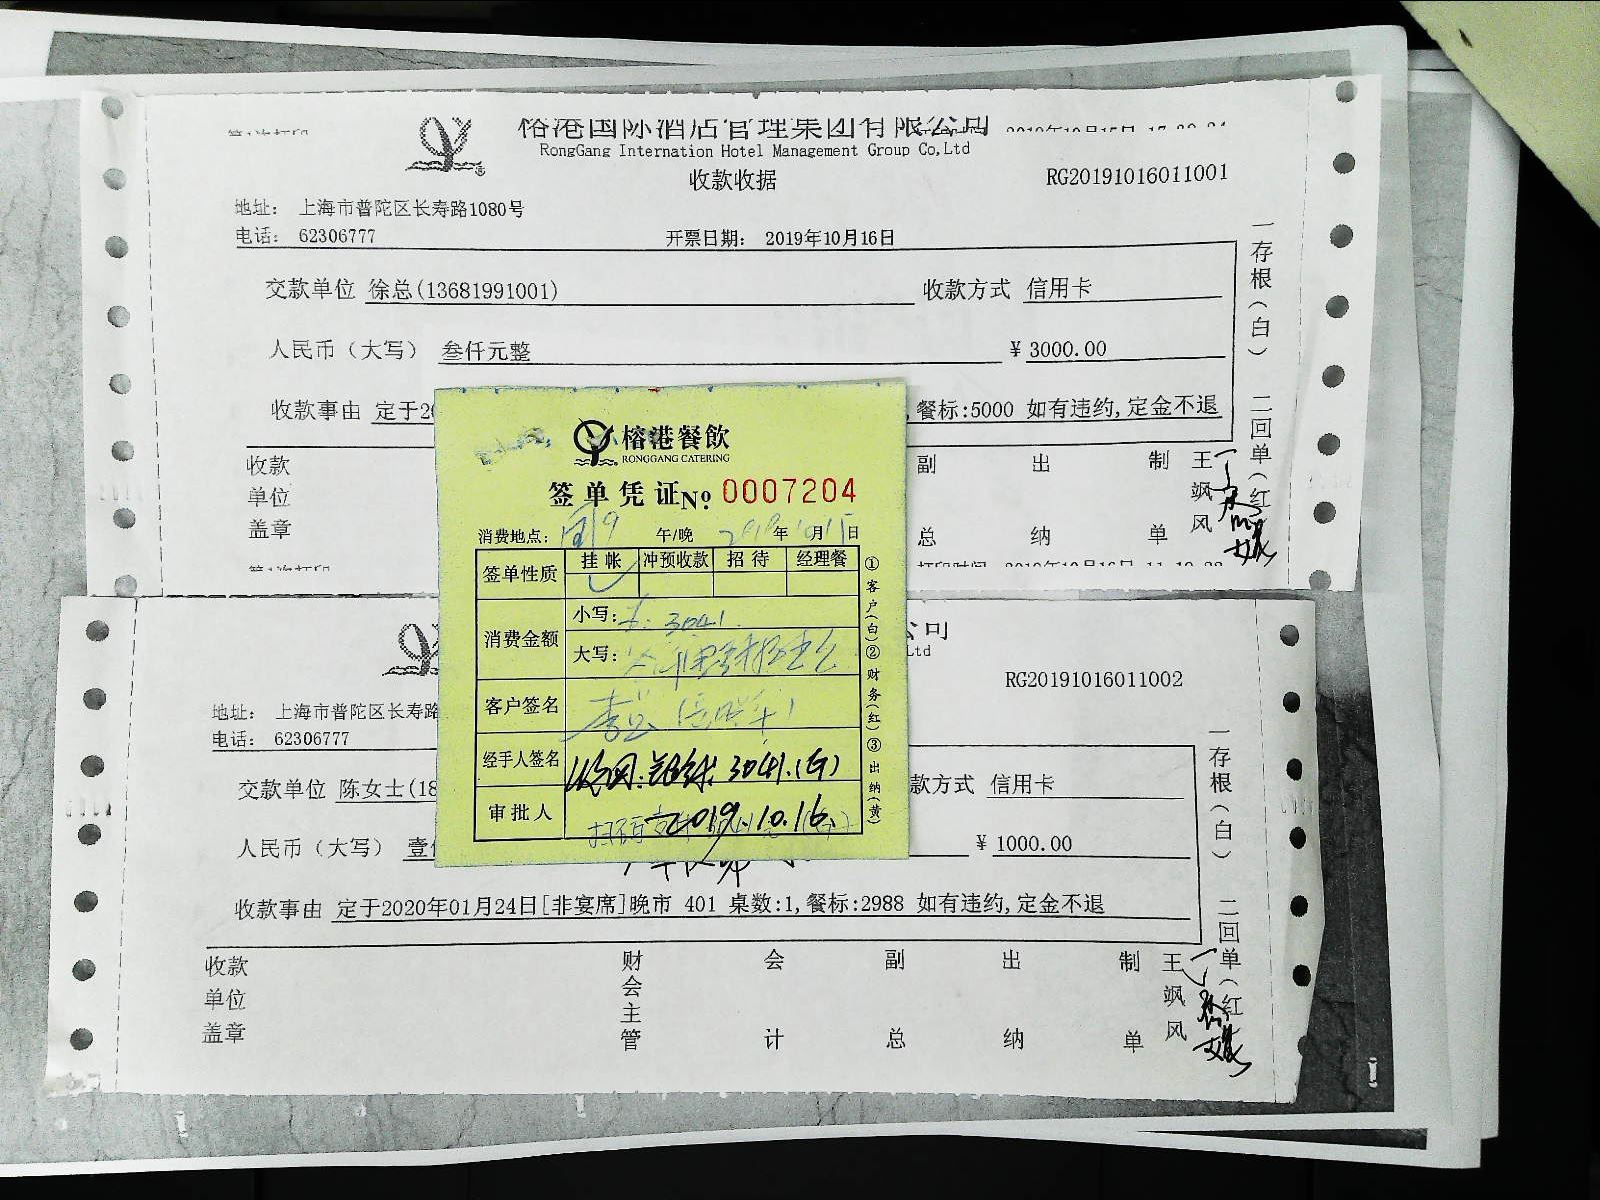 榕港国际酒店管理集团有限公司
RongGang Internation Hotel Management Group Co,Ltd
收款收据
RG20191016011001
地址： 上海市普陀区长寿路1080号
电话： 62306777
开票日期： 2019年10月16日
交款单位 徐总(13681991001)
收款方式 信用卡
人民币（大写） 叁仟元整
¥ 3000.00
收款事由 定于20
餐标:5000 如有违约,定金不退
收款单位盖章
副总
出纳
制单
王飒风
一存根（白）
二回单（红
榕港餐飲
RONGGANG CATERING
签单凭证 № 0007204
消费地点：
午/晚
年 10月15日
签单性质
挂帐 冲预收款 招待 经理餐
消费金额
小写: ¥. 3041.
大写:
客户签名
经手人签名
3041.
审批人
2019.10.16.
①客户(白)②财务(红)③出纳(黄)
公司
Ltd
RG20191016011002
地址： 上海市普陀区长寿路
电话： 62306777
交款单位 陈女士(18
款方式 信用卡
人民币（大写） 壹
¥ 1000.00
收款事由 定于2020年01月24日[非宴席]晚市 401 桌数:1,餐标:2988 如有违约,定金不退
收款单位盖章
财会主管
会计
副总
出纳
制单
王飒风
一存根（白）
二回单（红